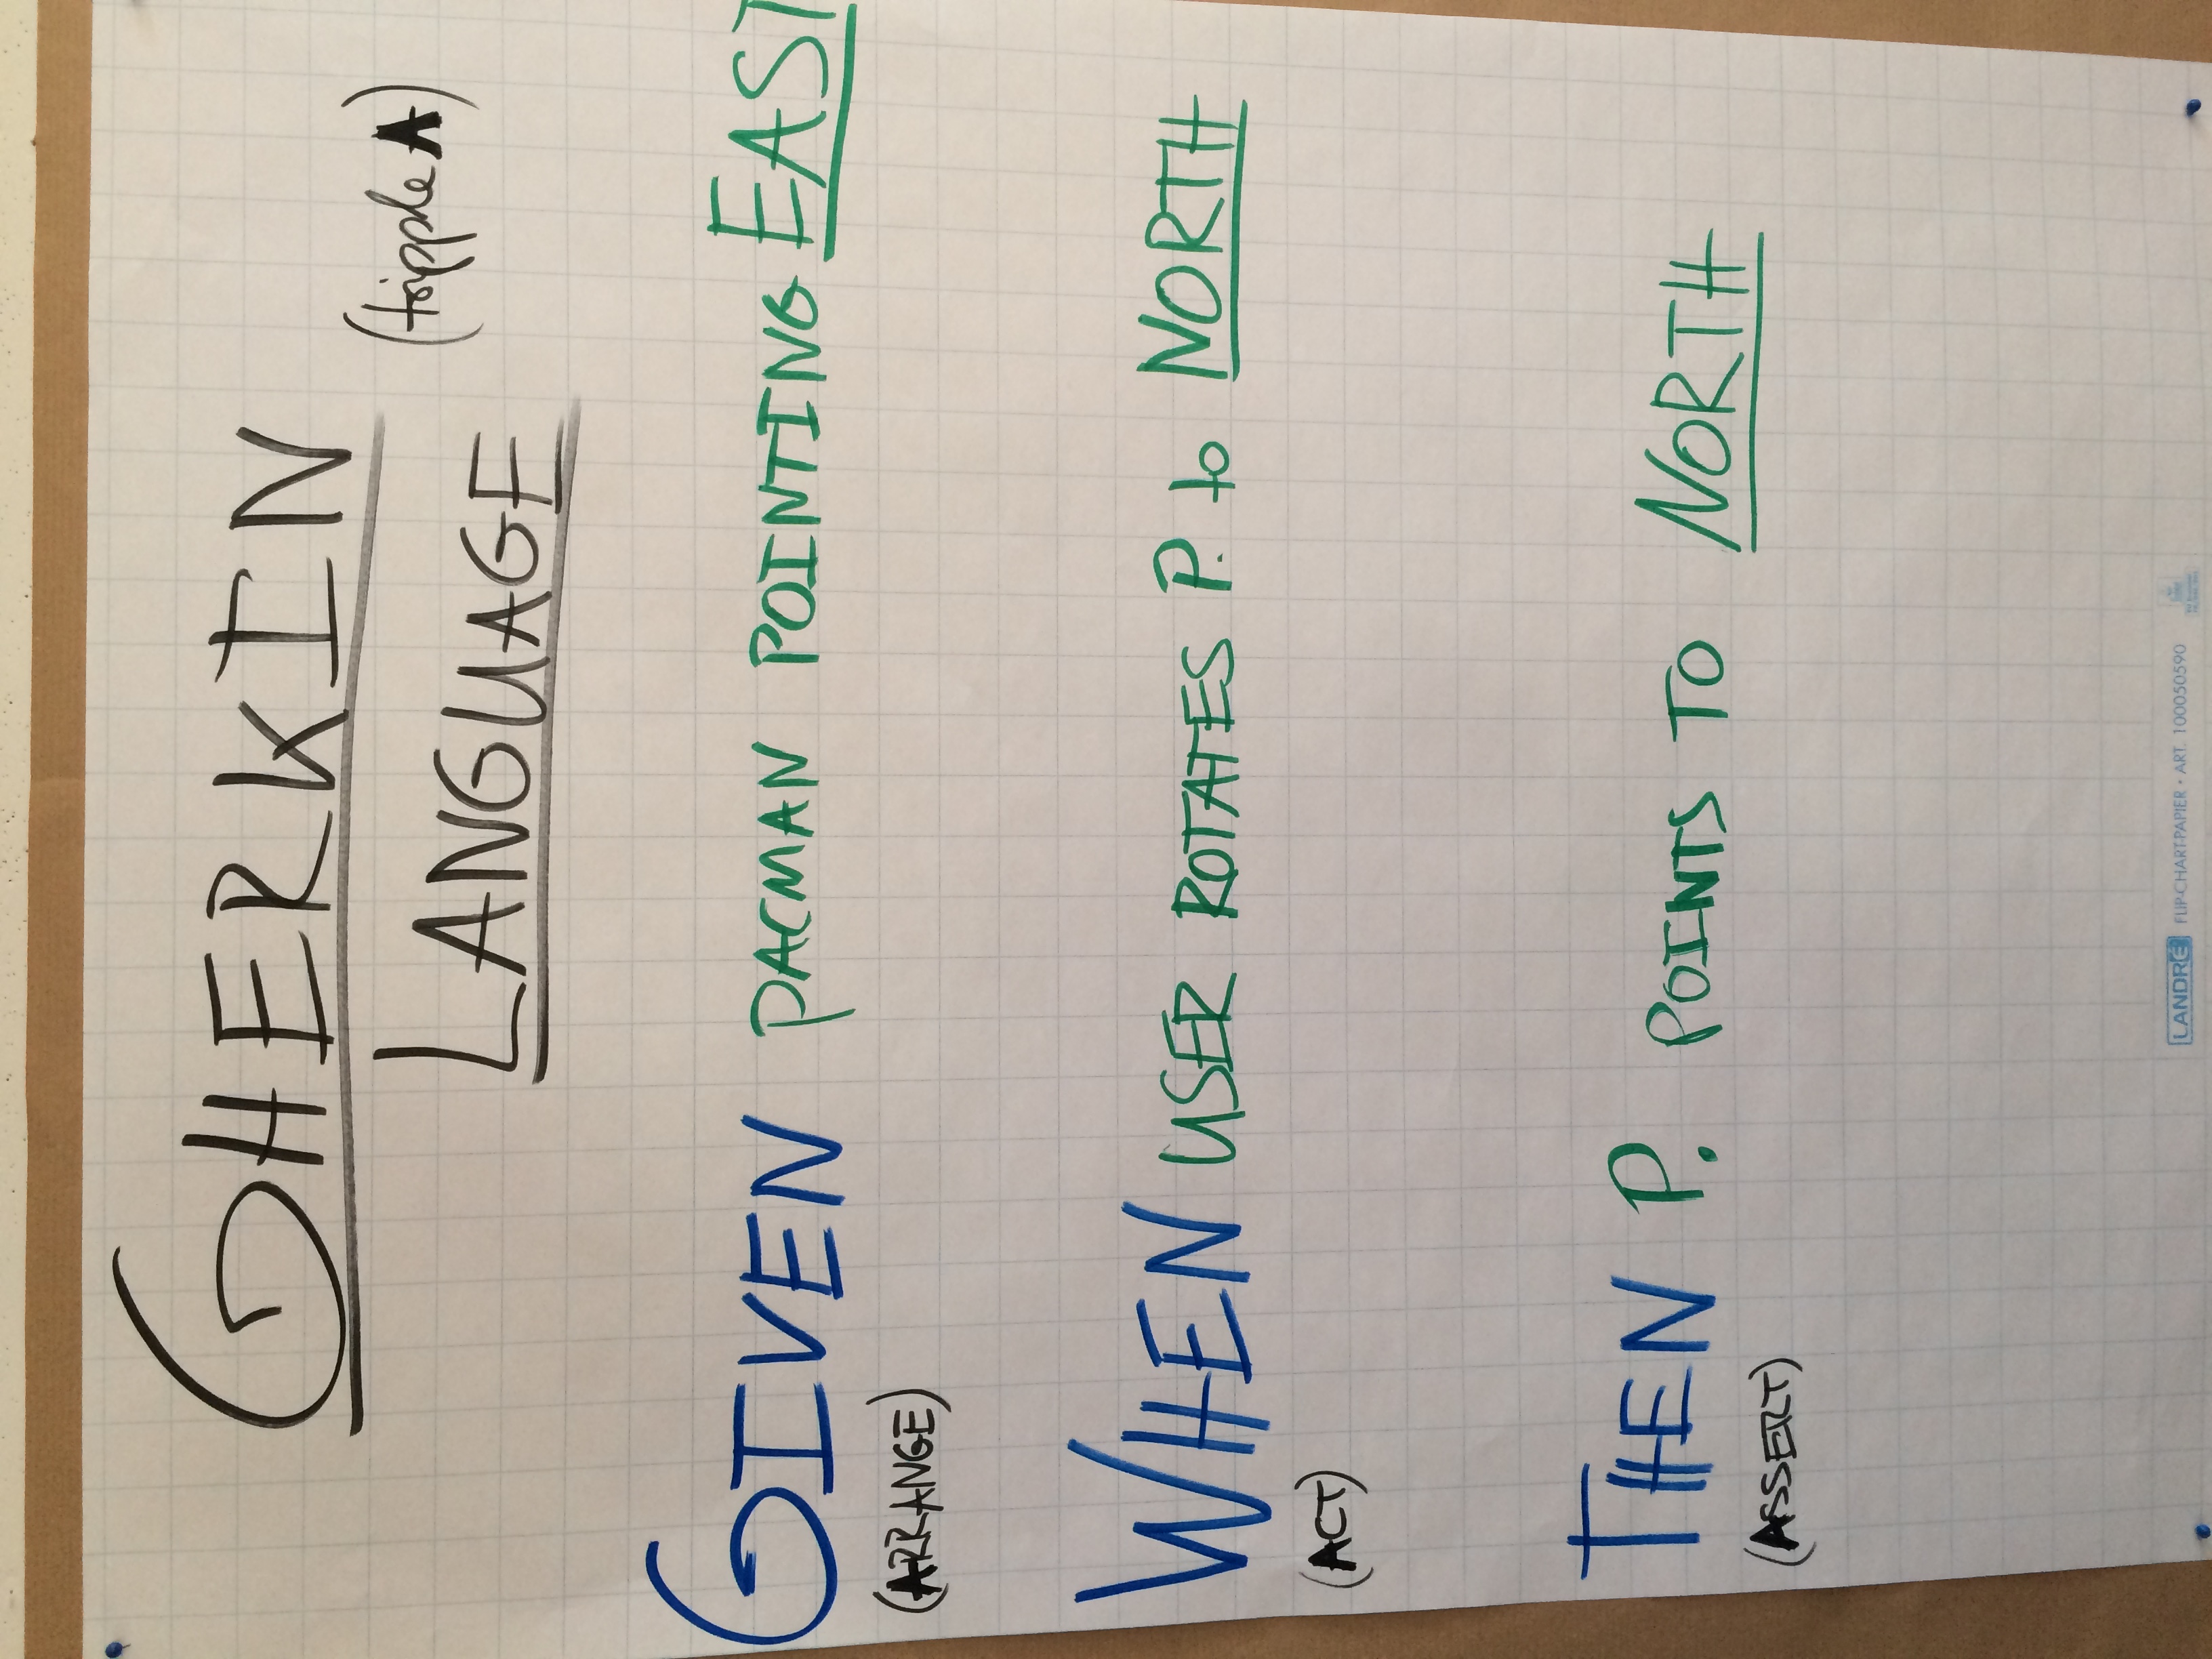 GHERKIN
LANGUAGE
(tripple A)
GIVEN PACMAN POINTING EAST
(ARRANGE)
WHEN USER ROTATES P. to NORTH
(ACT)
THEN P. POINTS TO NORTH
(ASSERT)
LANDRÉ FLIP-CHART-PAPIER • ART. 100050590